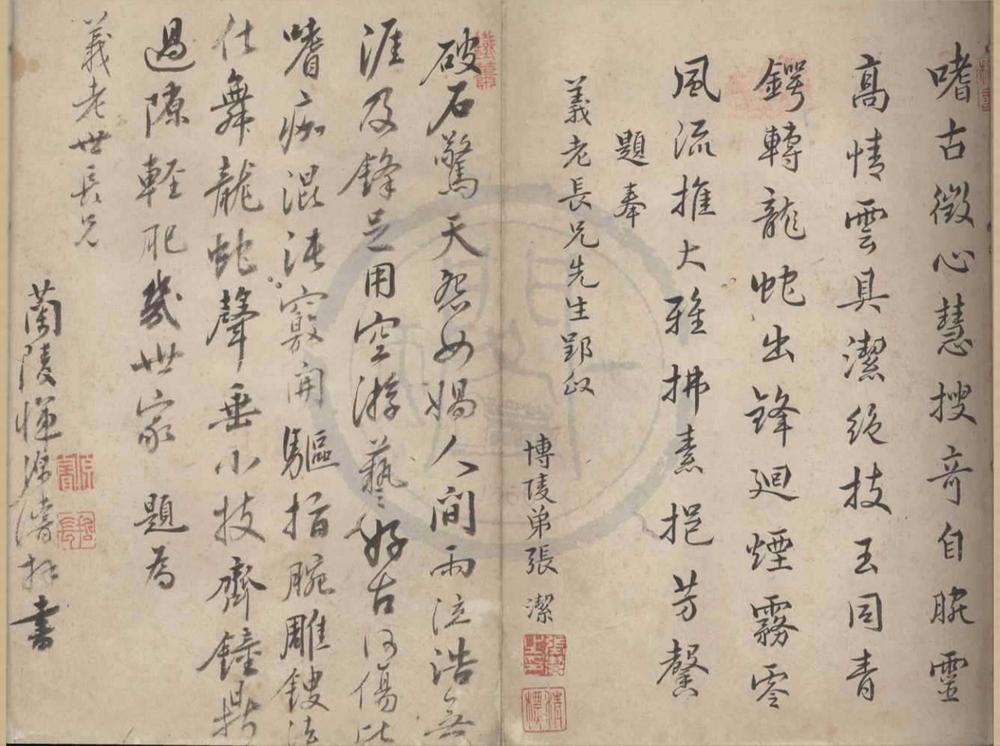 嗜古徵心慧搜奇自腕靈
高情雲具潔絕技玉同青
鍔轉龍蛇出鋒迴煙霧零
風流推大雅拂素挹芳馨
題奉
義老長兄先生郢政
博陵弟張潔
破石驚天怨女媧人間雨泣浩無
涯及鋒是用空游藝好古何傷比
嗜痂混沌竅開驅指腕雕鎪法
仕舞龍蛇聲垂小技齊鐘鼎
過隙輕肥幾世家 題為
義老世長兄
蘭陵惲源濬拜書